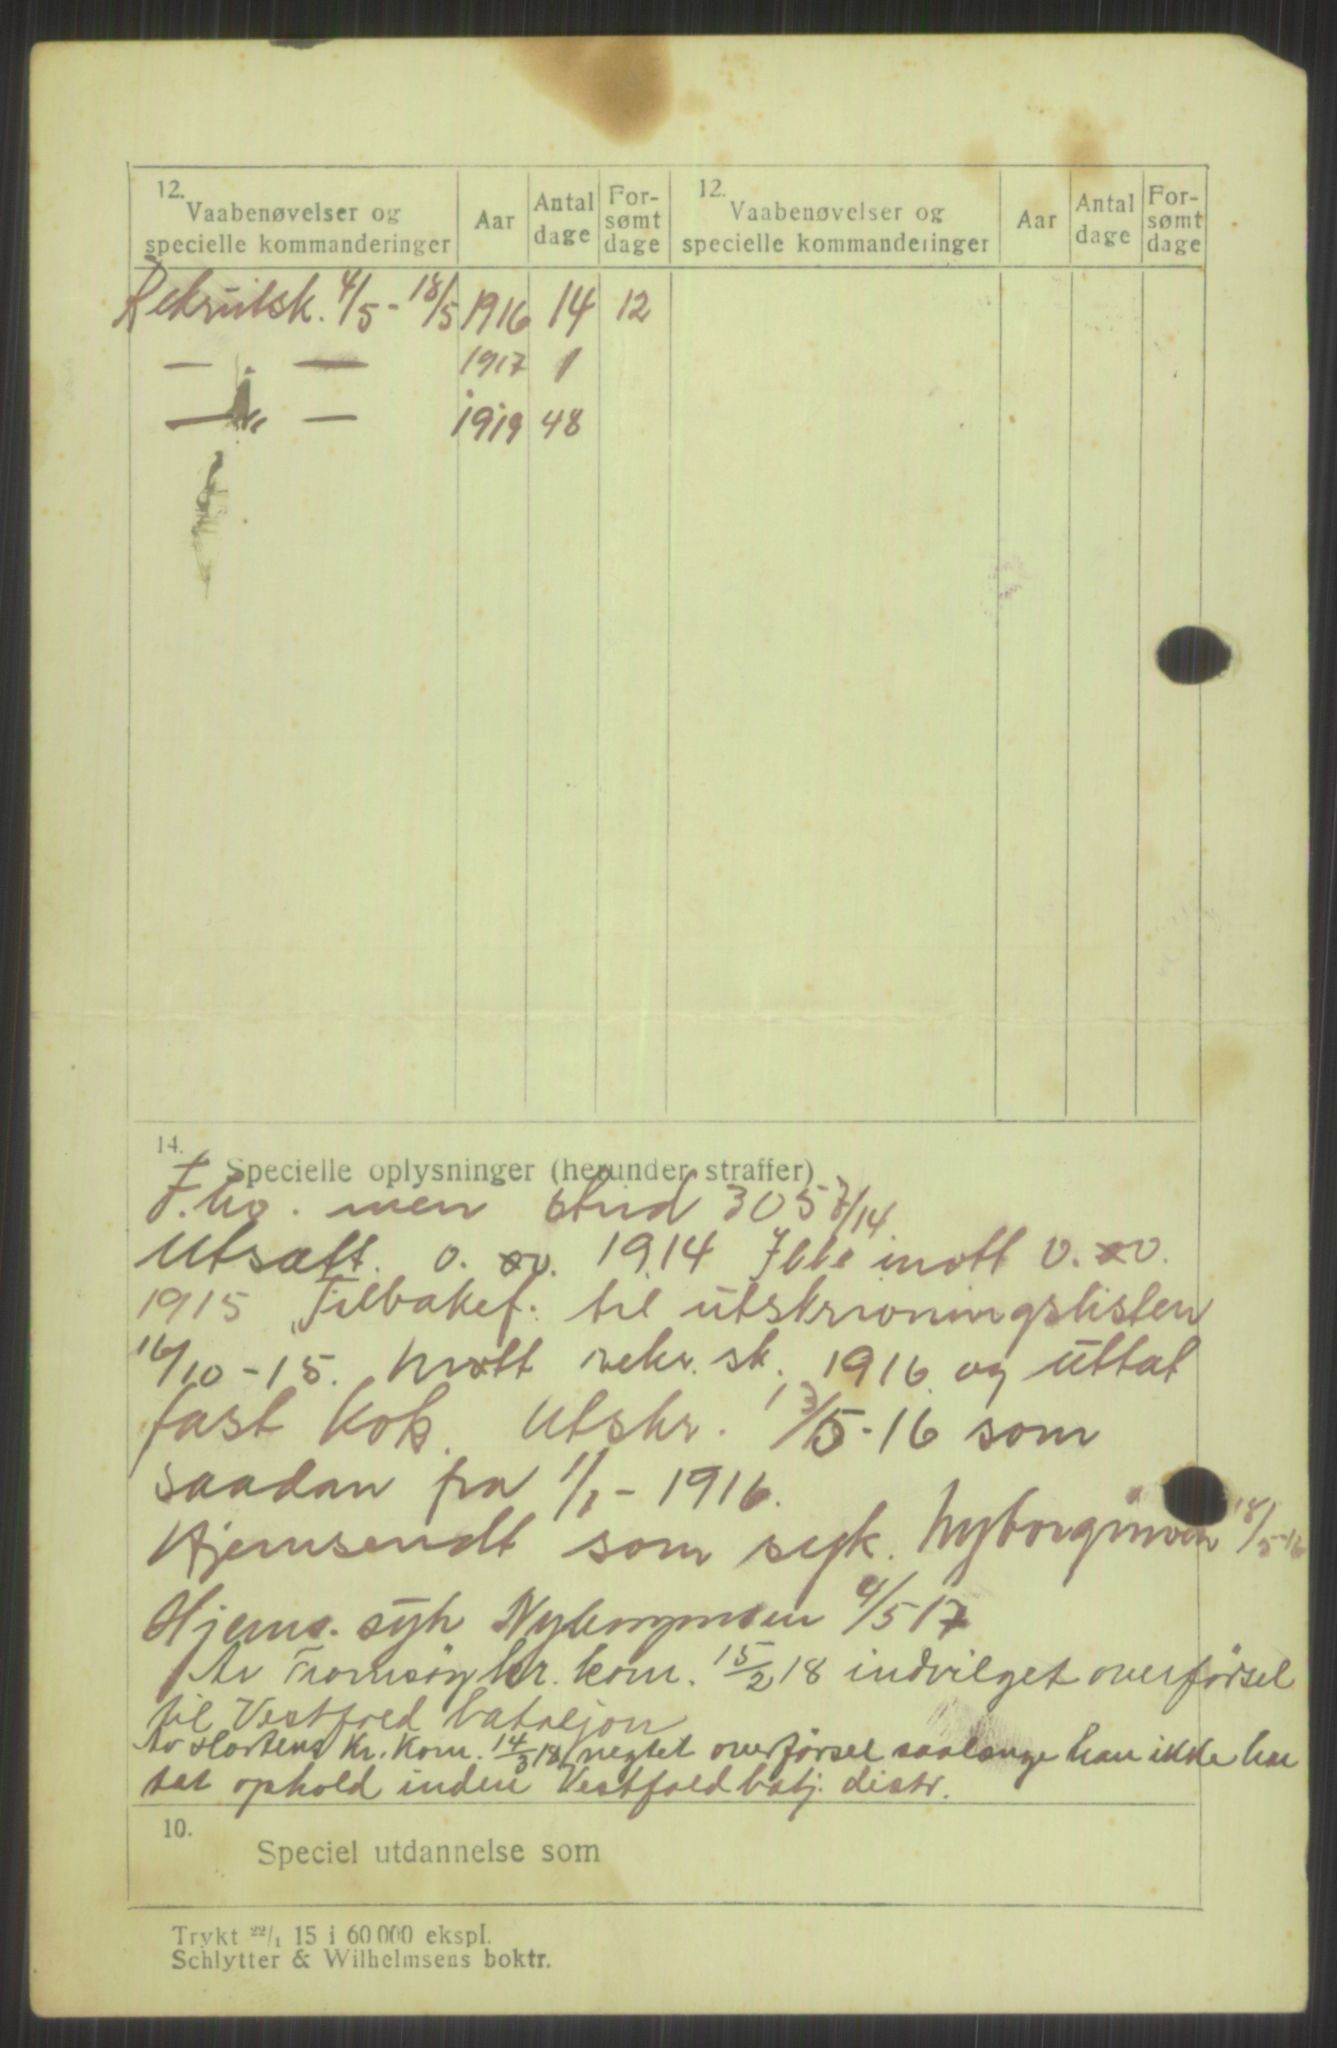 12.
Vaabenøvelser og
specielle kommanderinger
Aar
Antal
dage
For-
sømt
dage
12.
Vaabenøvelser og
specielle kommanderinger
Aar
Antal
dage
For-
sømt
dage
Rekrutsk. 4/5 - 18/5 1916 14 12
— " — 1917 1
— " — 1919 48
14.
Specielle oplysninger (herunder straffer)
men stud 305
Utsatt. v. 1914 Ikke mott v.
1915 Tilbakef. til utskrivningslisten
16/10 - 15. Møtt rekr. sk. 1916 og uttat
fast kok. Utskr. 13/5 - 16 som
saadan fra 1/1 - 1916.
Hjemsendt som syk. Nyborgmoen 18/5-16
Hjems. syk Nyborgmoen 4/5 17
Av Tromsøy kr. kom. 15/2 18 indvilget overførsel
til Vestfold bataljon
Av Hortens Kr. Kom. 14/3 18 negtet overførsel saalænge han ikke har
tat ophold inden Vestfold batj. distr.
10.
Speciel utdannelse som
Trykt 22/1 15 i 60 000 ekspl.
Schlytter & Wilhelmsens boktr.